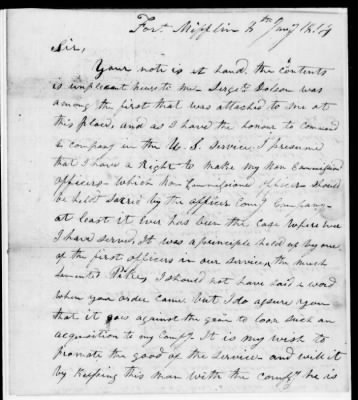 Fort Mifflin 4th Jany 1814
Sir,
Your note is at hand. the Contents
is unplicant hews to me Sergt. Dolson was
among the first that was attached to me at
this place, and as I have the honour to command
a company in the U. S. Service, I presume
that I have a Right to make my Non Commissiond
officers – which Non Commissioned officers should
be held sacred by the officer Comg Company –
at least it ever has been the case where ever
I have served. It was a principle held up by one
of the first officers in our service, the much
lamented Pike, I should not have said a word
when your order came but I do assure you
that it goes against the grain to loose such an
acquisition to my Compy. It is my wish to
promote the good of the service and will it
by Keeping this man with the compy. he is